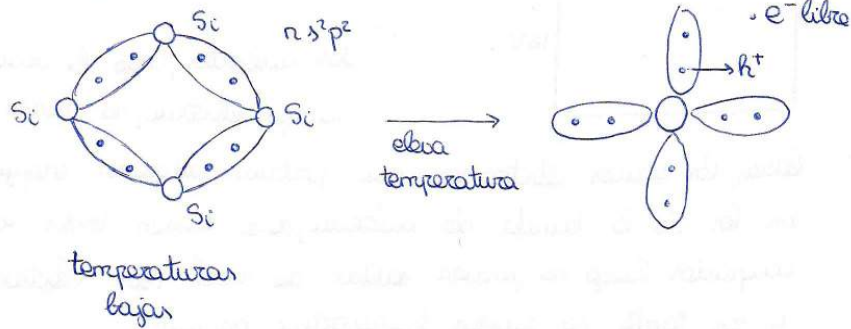 Si
n s²p²
· e⁻ libre
→ h⁺
Si
Si
eleva
temperatura
Si
temperaturas
bajas